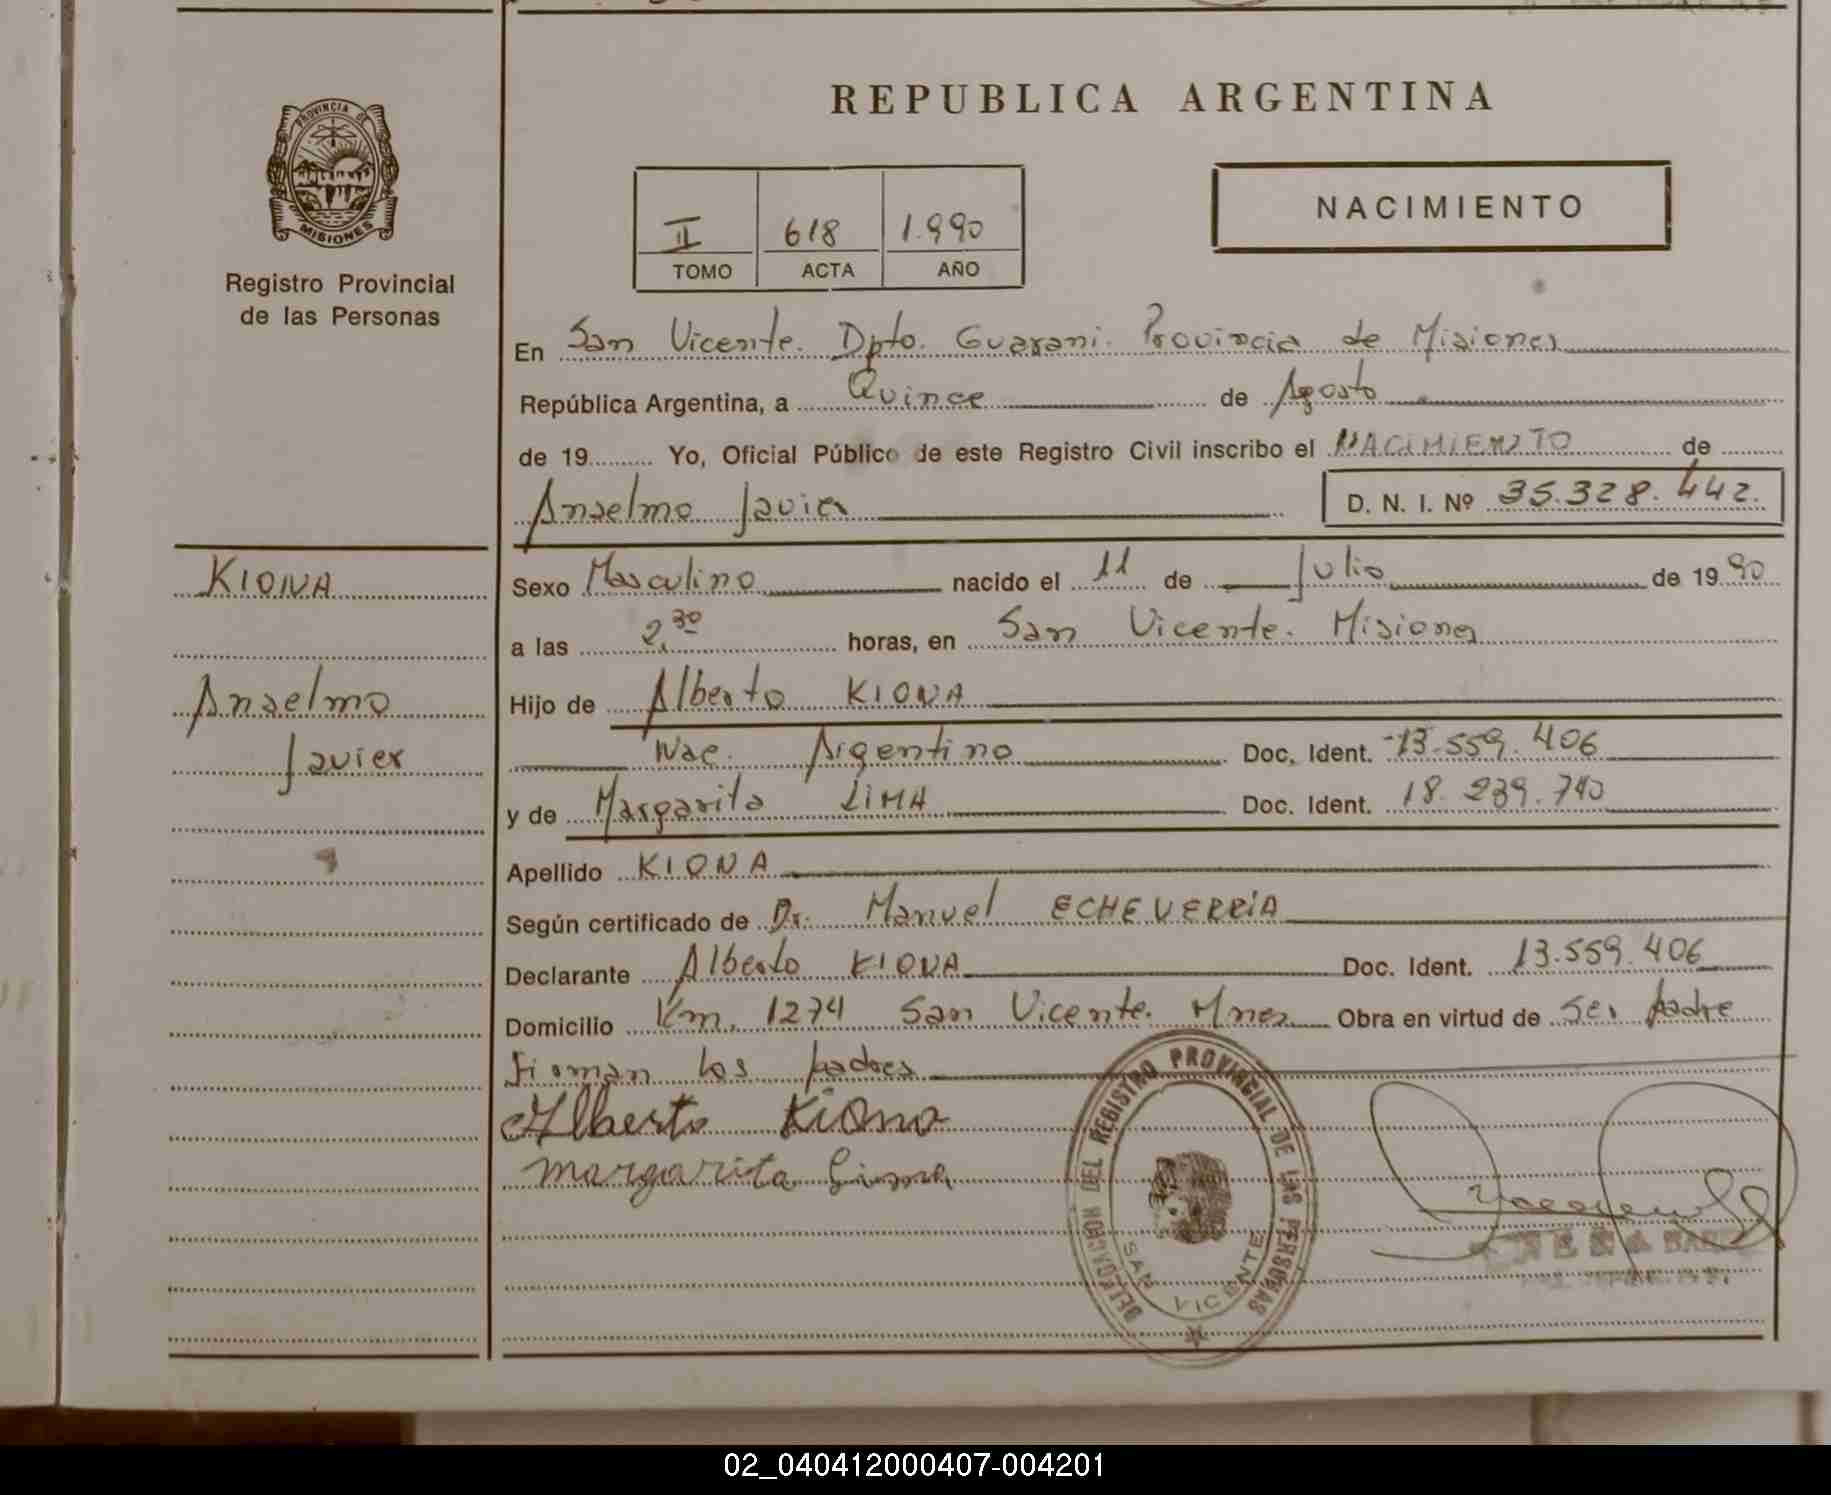 REPUBLICA ARGENTINA
PROVINCIA DE
MISIONES
Registro Provincial
de las Personas
II 618 1.990
TOMO ACTA AÑO
NACIMIENTO
En San Vicente. Dpto. Guarani. Provincia de Misiones
República Argentina, a Quince de Agosto
de 19 Yo, Oficial Público de este Registro Civil inscribo el NACIMIENTO de
Anselmo Javier D. N. I. Nº 35.328.442.
KIONA
Anselmo
Javier
Sexo Masculino nacido el 11 de Julio de 1990
a las 2,30 horas, en San Vicente. Misiones
Hijo de Alberto KIONA
Nac. Argentino Doc. Ident. 13.559.406
y de Margarita LIMA Doc. Ident. 18.239.740
Apellido KIONA
Según certificado de Dr. Manuel ECHEVERRÍA
Declarante Alberto KIONA Doc. Ident. 13.559.406
Domicilio Km. 1274 San Vicente. Mnes Obra en virtud de Ser padre
Firman los padres
Alberto Kiona
margarita Lima
DELEGACION DEL REGISTRO PROVINCIAL DE LAS PERSONAS
SAN VICENTE
02_040412000407-004201